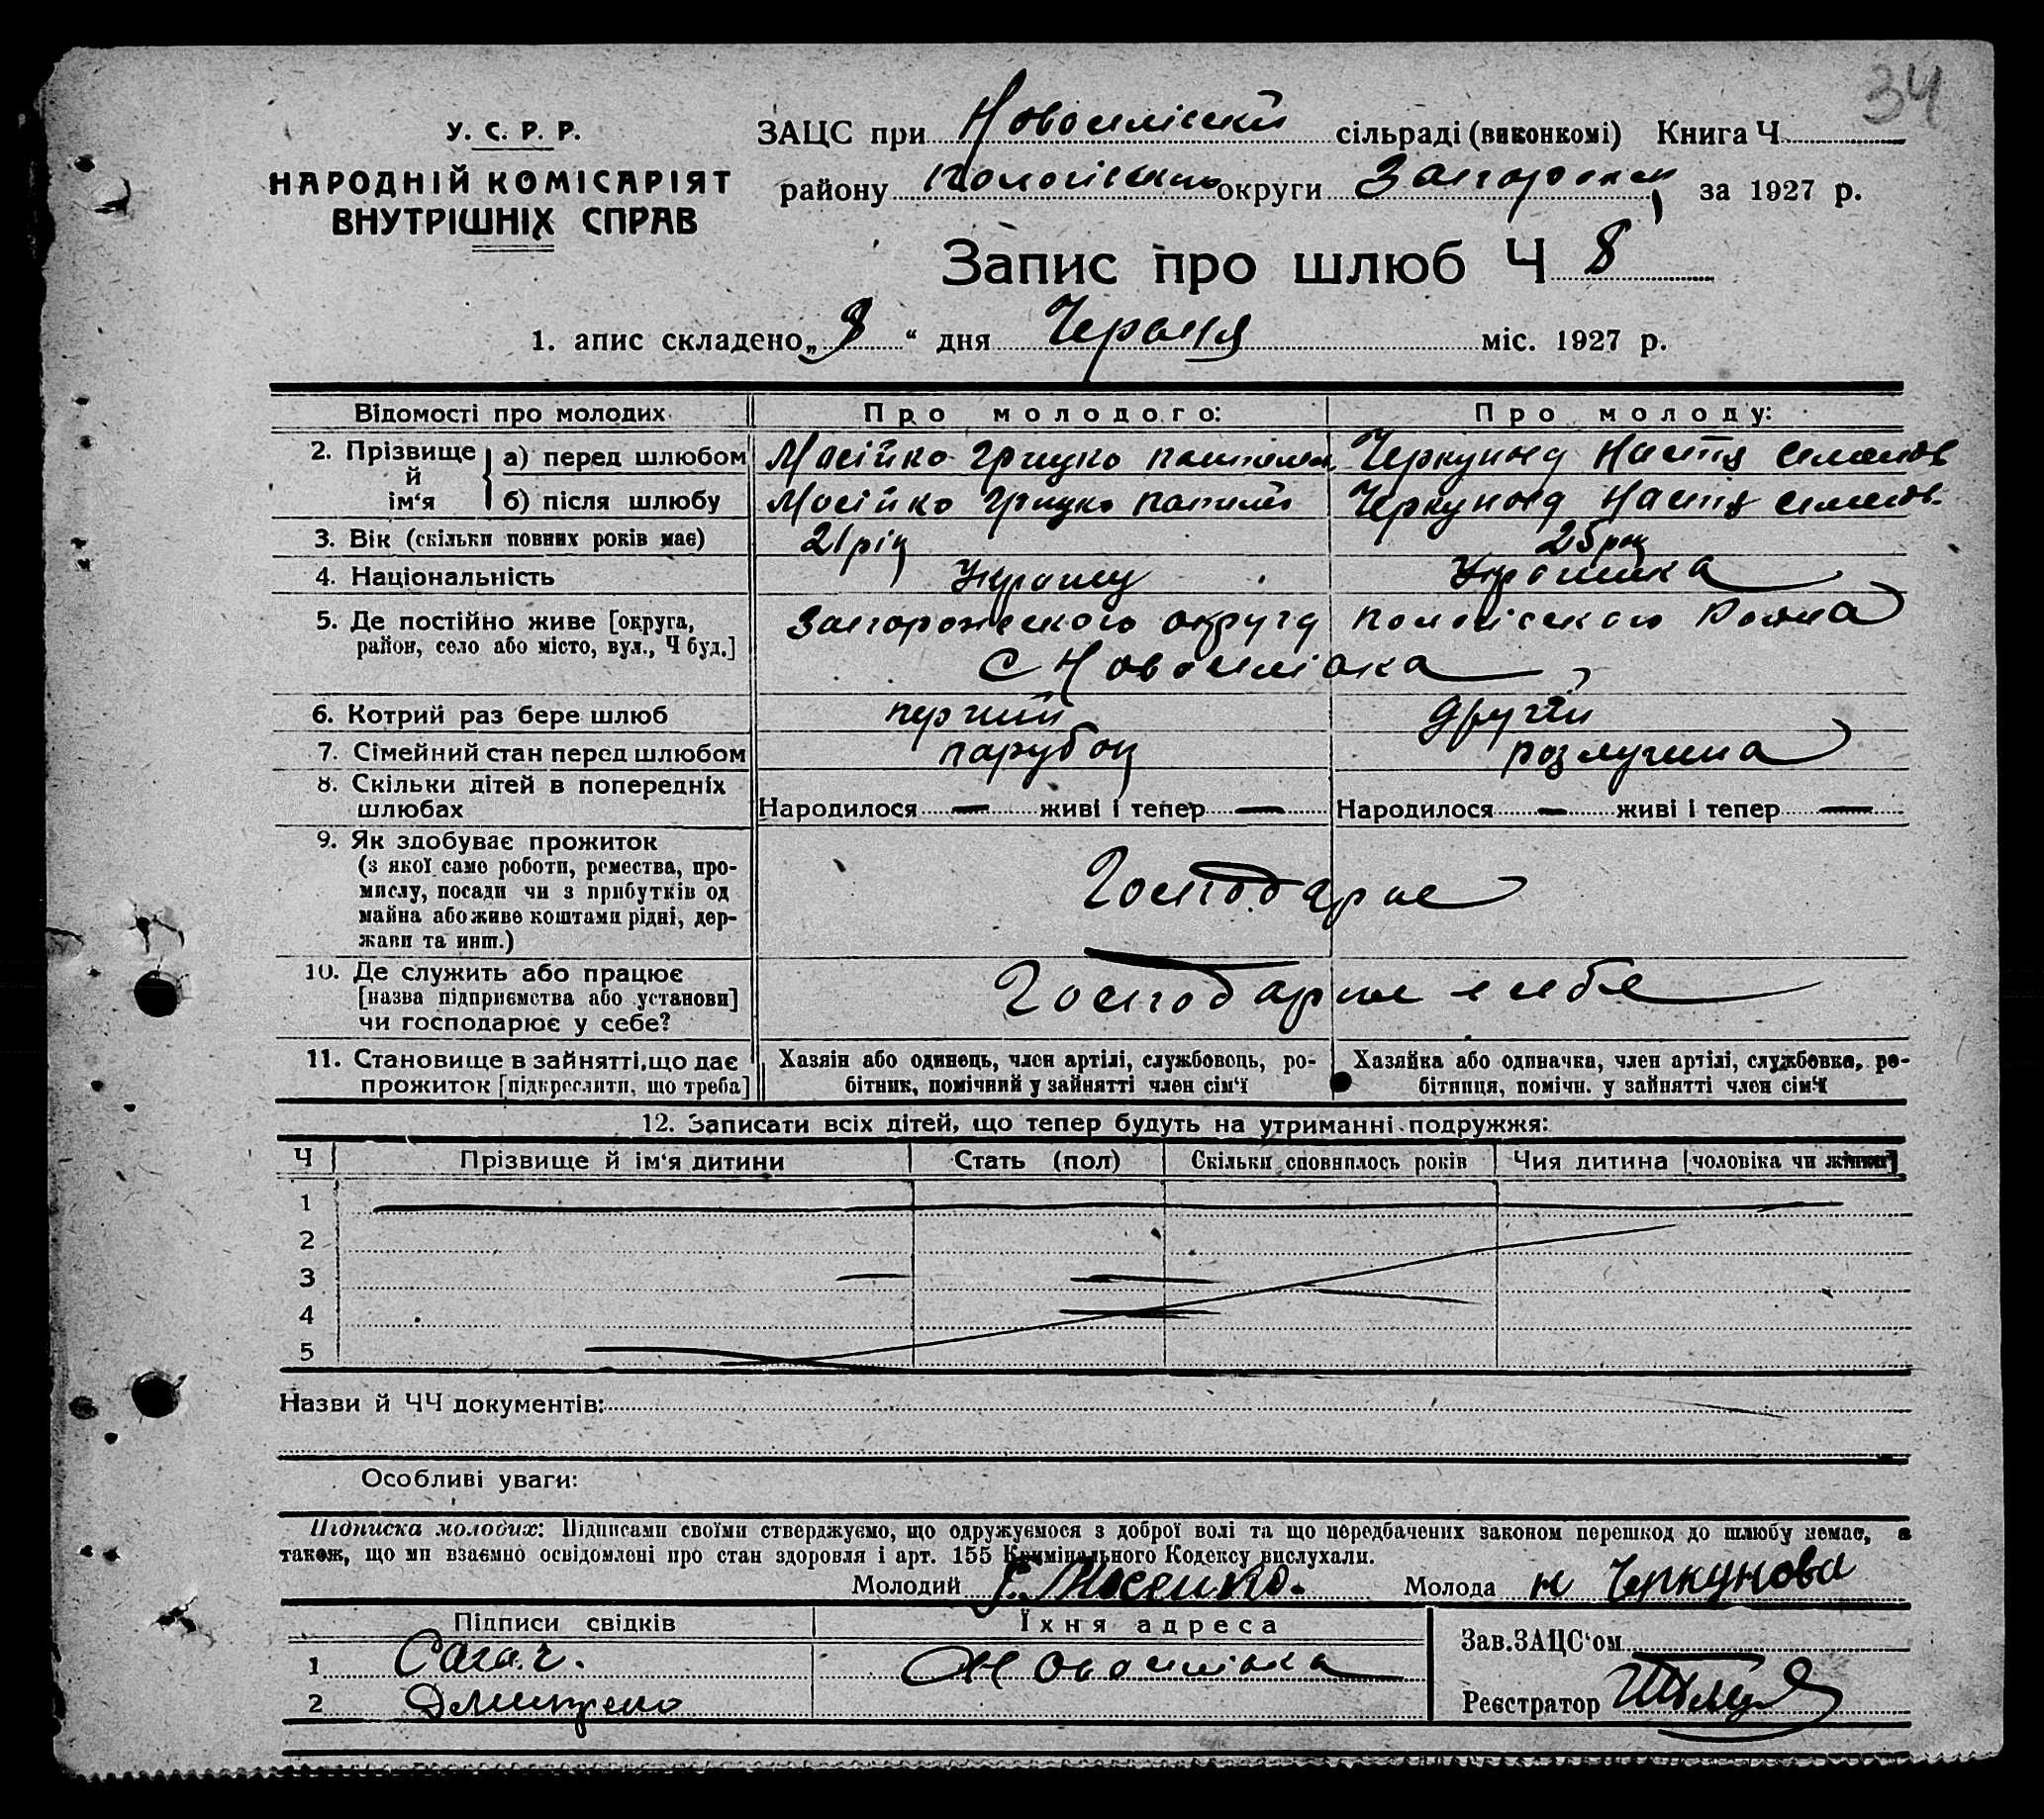 34
У. С. Р. Р.
НАРОДНІЙ КОМІСАРІЯТ
ВНУТРІШНІХ СПРАВ
ЗАЦС при Новоселівській сільраді (виконкомі) Книга Ч
району округи за 1927 р.
Запис про шлюб Ч 8
1. апис складено „ 8 “ дня Червня міс. 1927 р.
Відомості про молодих
Про молодого:
Про молоду:
2. Прізвище й ім‘я
а) перед шлюбом
Мосійко Грицко
Черкунова Настя
б) після шлюбу
Мосійко Грицко
Черкунова Настя
3. Вік (скільки повних років має)
21 рік
25 рок
4. Національність
Українец
Українка
5. Де постійно живе [округа,
район, село або місто, вул., Ч буд.]
Запорожского округу Пологівского Района
С Новоселівка
6. Котрий раз бере шлюб
перший
другий
7. Сімейний стан перед шлюбом
парубок
розлучена
8. Скільки дітей в попередніх
шлюбах
Народилося — живі і тепер —
Народилося — живі і тепер —
9. Як здобуває прожиток
(з якої саме роботи, ремества, про-
мислу, посади чи з прибутків од
майна або живе коштами рідні, дер-
жави та инш.)
Господарює
10. Де служить або працює
[назва підприємства або установи]
чи господарює у себе?
Господарює себе
11. Становище в зайнятті, що дає
прожиток [підкреслити, що треба]
Хазяїн або одинець, член артілі, службовець, ро-
бітник, помічний у зайнятті член сім‘ї
Хазяйка або одиначка, член артілі, службовка, ро-
бітниця, помічн. у зайнятті член сім‘ї
12. Записати всіх дітей, що тепер будуть на утриманні подружжя:
Ч
Прізвище й ім‘я дитини
Стать (пол)
Скільки сповнилось років
Чия дитина [чоловіка чи жінки]
1
2
3
4
5
Назви й ЧЧ документів:
Особливі уваги:
Підписка молодих: Підписами своїми стверджуємо, що одружуємося з доброї волі та що передбачених законом перешкод до шлюбу немає, а
також, що ми взаємно освідомлені про стан здоровля і арт. 155 Кримінального Кодексу вислухали.
Молодий Г. Мосейко.
Молода Н Черкунова
Підписи свідків
Їхня адреса
1 Сагач.
Новоселівка
2 Дмитренко
Зав. ЗАЦС‘ом
Реєстратор